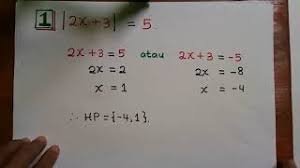 1 |2x+3| = 5
2x+3 = 5 atau 2x+3 = -5
2x = 2 2x = -8
x = 1 x = -4
∴ HP = {-4,1}.